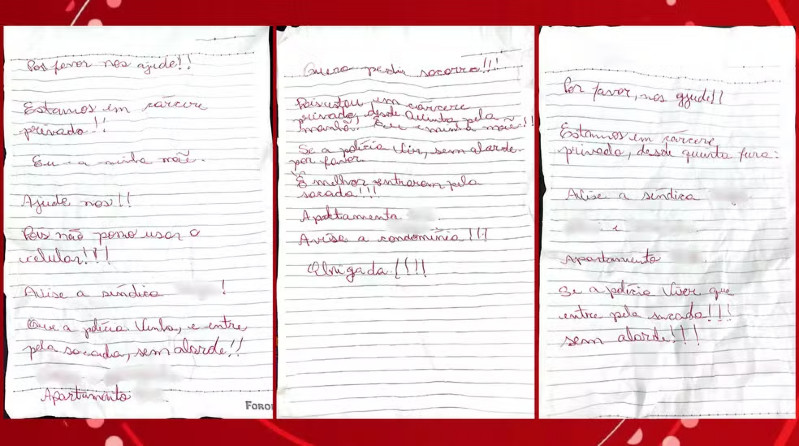 Por favor nos ajude!!
Estamos em cárcere
privado!!
Eu e a minha mãe.
Ajude nos!!
Pois não posso usar o
celular!!!
Avise a síndica !
Que a polícia venha, e entre
pela sacada, sem alarde!!
Apartamento
FORON
Quero pedir socorro!!!
Pois estou em cárcere
privado, desde Quinta pela
manhã. Eu e minha mãe!!
Se a polícia vir, sem alarde
por favor.
É melhor entrarem pela
sacada!!!
Apartamento
Avise a condominia!!!
Obrigada!!!!
Por favor, nos ajude!!
Estamos em cárcere
privado, desde quinta feira:
Avise a síndica
e
Apartamento
Se a polícia vier que
entre pela sacada!!!
sem alarde!!!